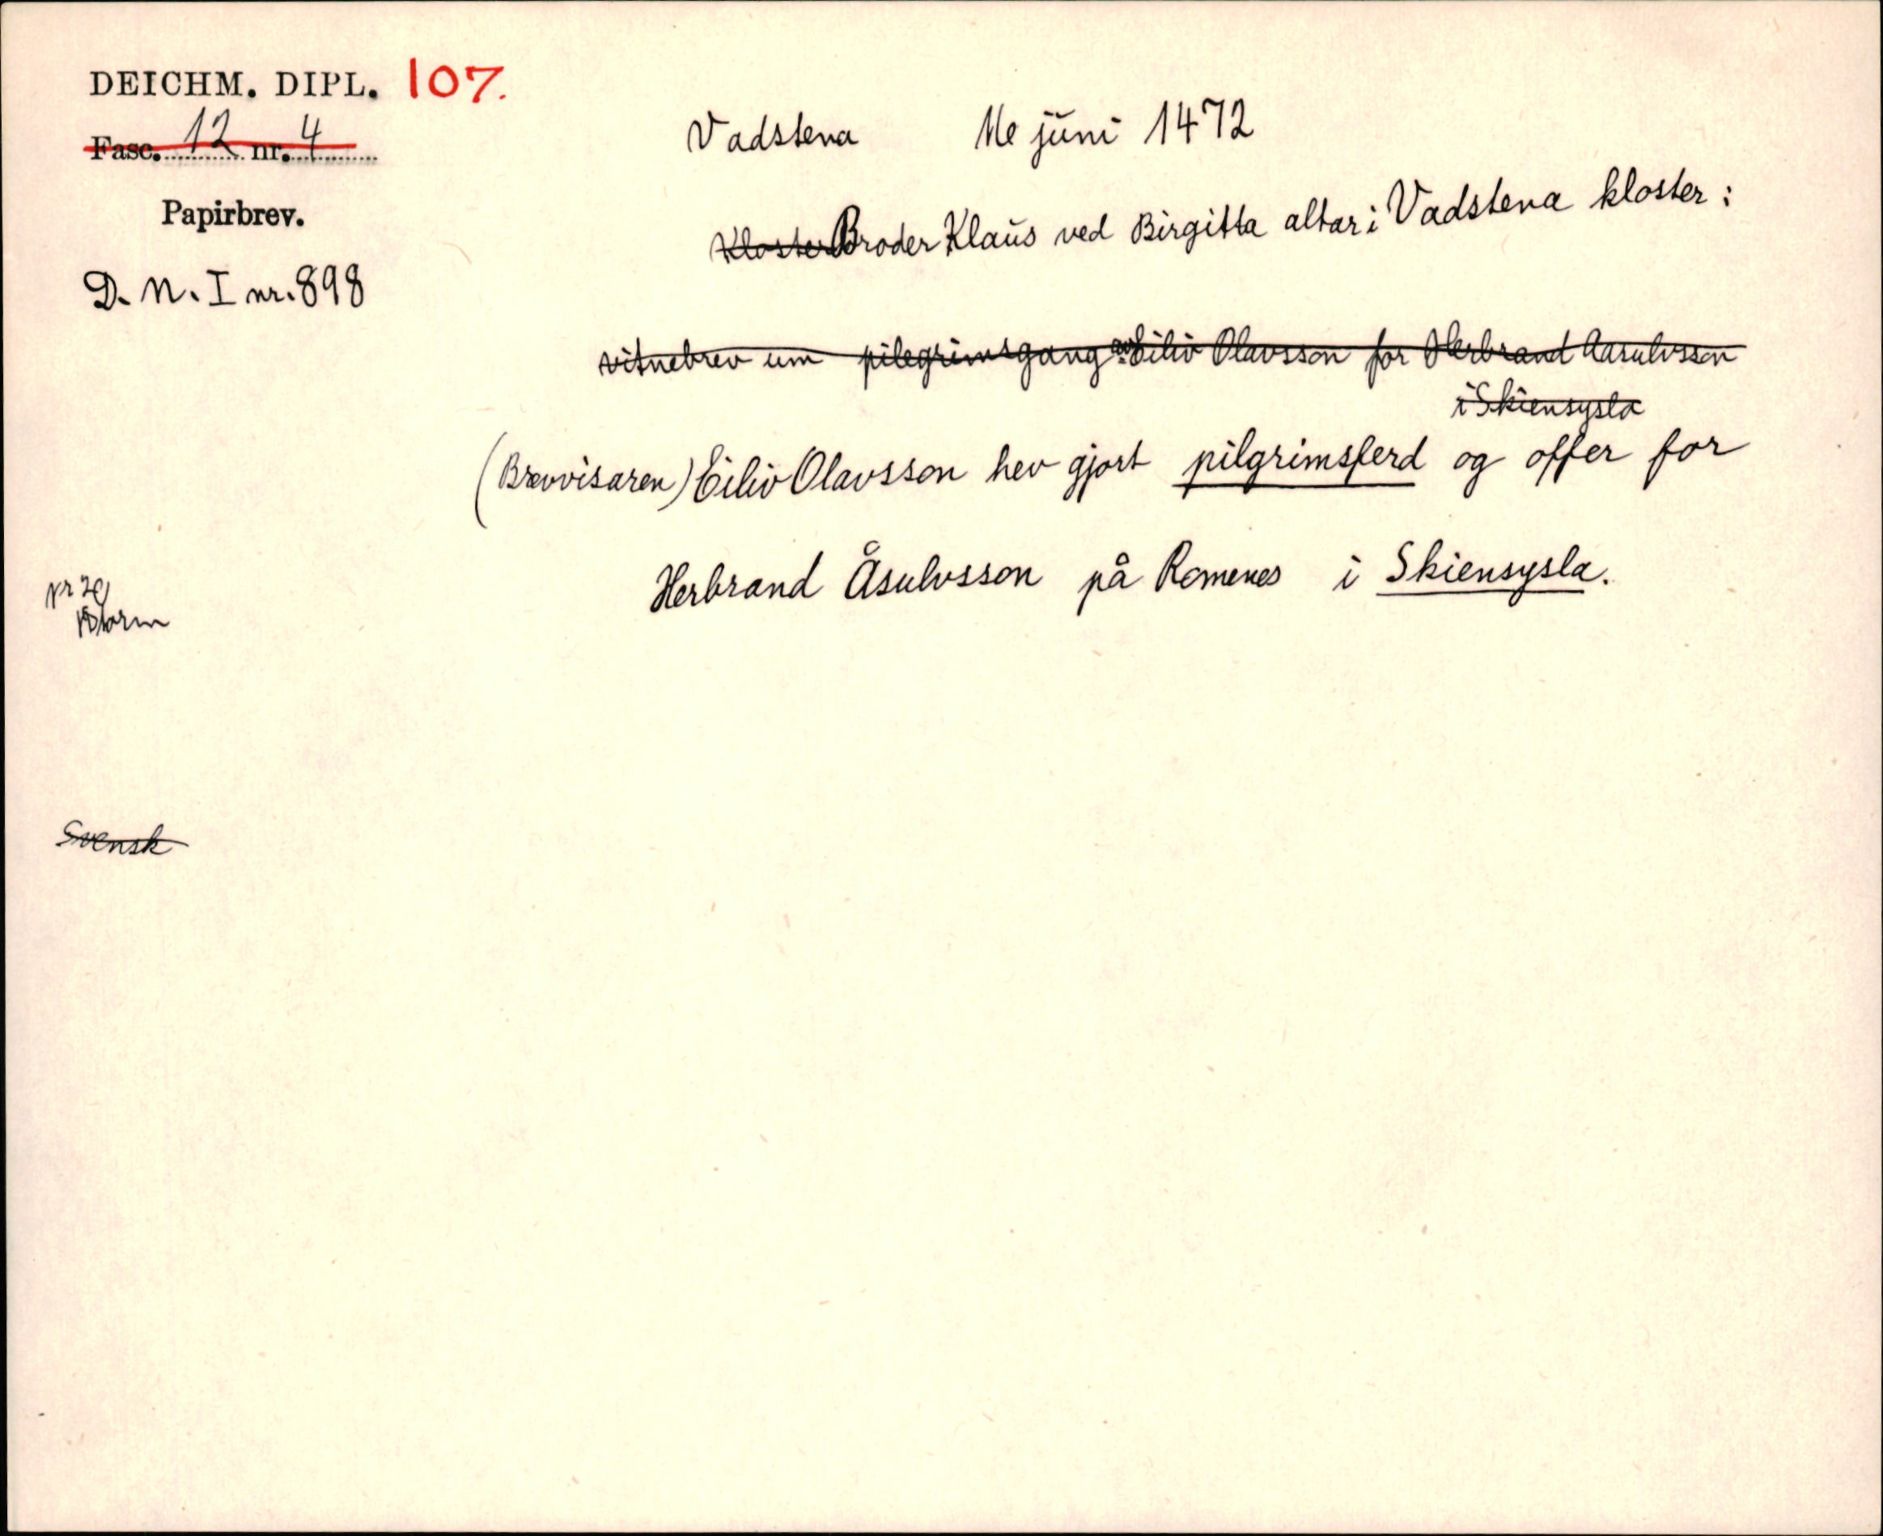 DEICHM. DIPL. 107.
Fasc. 12 nr. 4
Papirbrev.
D. N. I nr. 898
Vadstena 11e juni 1472
Kloster Broder Klaus ved Birgitta altar i Vadstena kloster:
vitnebrev um pilegrimsgang av Eiliv Olavsson for Herbrand Aasulvsson
i Skiensysla
(Brevvisaren) Eiliv Olavsson hev gjort pilgrimsferd og offer for
Herbrand Åsulvsson på Romenes i Skiensysla.
Svensk